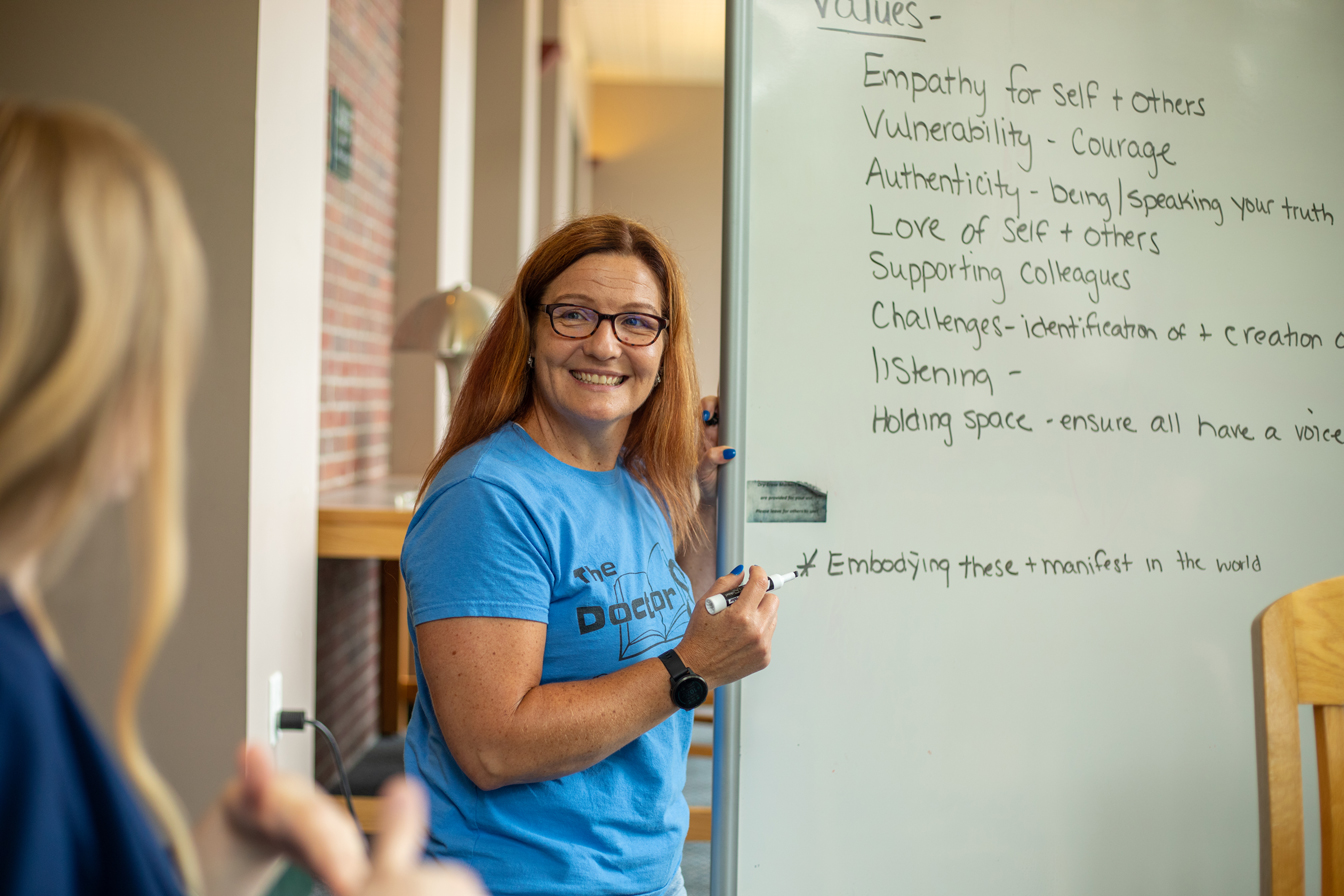 Values-
Empathy for self + others
Vulnerability - Courage
Authenticity - being/speaking your truth
Love of Self + others
Supporting Colleagues
Challenges- identification of + creation
listening -
Holding space - ensure all have a voice
are provided for your use
Please leave for others to use
* Embodying these + manifest in the world
The
Doctor